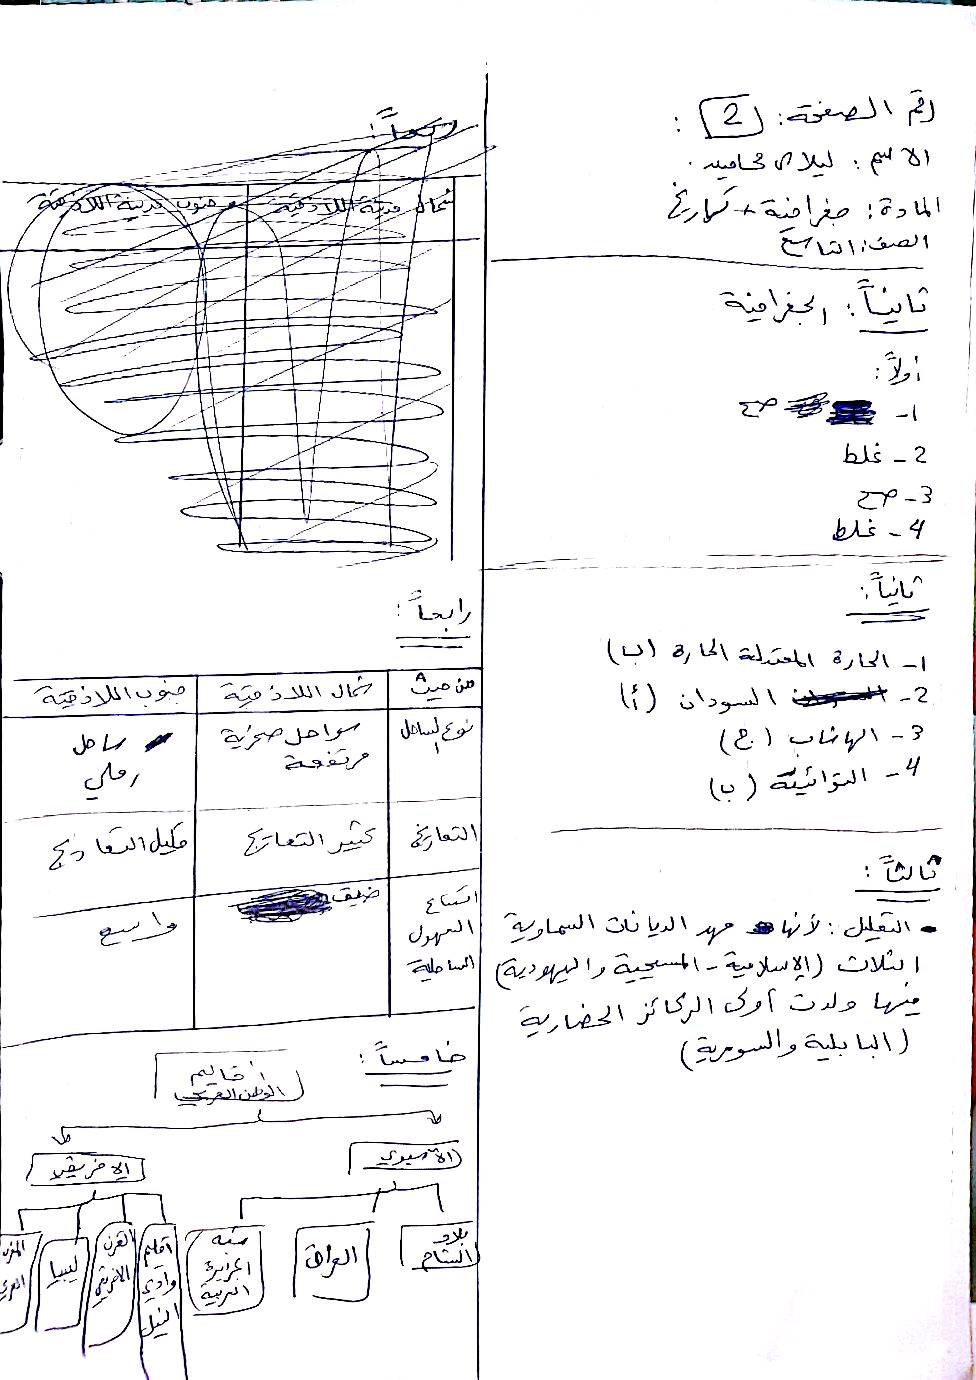 رقم الصفحة: 2 :
الاسم: ليلاى محاميد.
المادة: جغرافية + تاريخ
الصف: التاسع
ثانياً: الجغرافية
أولاً:
1- صح
2- غلط
3- صح
4- غلط
ثانياً:
1- الحارة المعتدلة الحارة (ب)
2- السودان (أ)
3- الهضاب (ج)
4- (ب)
ثالثاً:
• التعليل: لأنها مهد الديانات السماوية
الثلاث (الإسلامية - المسيحية واليهودية)
فيها ولدت أولى الركائز الحضارية
(البابلية والسومرية)
رابعاً:
شمال مدينة اللاذقية جنوب مدينة اللاذقية
رابعاً:
من حيث شمال اللاذقية جنوب اللاذقية
نوع الساحل سواحل صخرية مرتفعة ساحل رملي
التعاريج كثير التعاريج قليل التعاريج
اتساع السهول الساحلية ضيق واسع
خامساً:
أقاليم
الوطن العربي
الآسيوي الإفريقي
بلاد الشام
العراق
شبه الجزيرة العربية
اقليم وادي النيل
القرن الافريقي
ليبيا
المغرب العربي